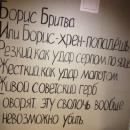 Борис Бритва
Или Борис-хрен-попадёшь
Резкий как удар серпом по яйцам
Жёсткий как удар молотом
Живой советский герб
Говорят, эту сволочь вообще
невозможно убить